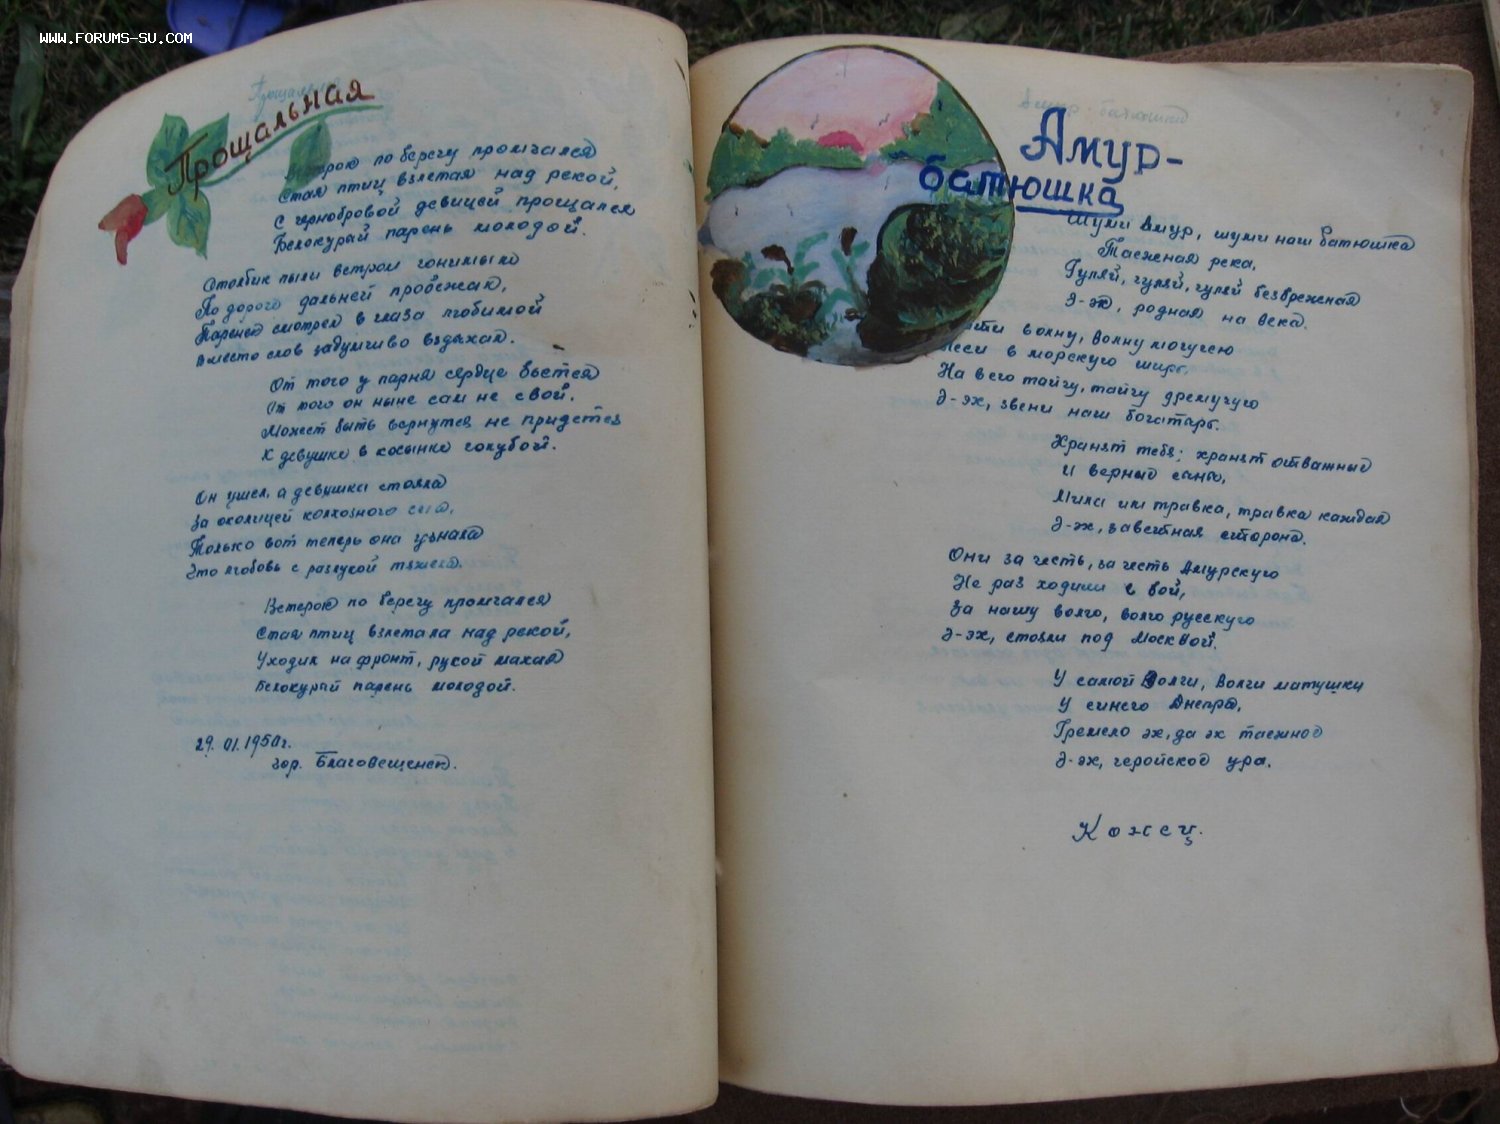 WWW.FORUMS-SU.COM
Прощальная
по берегу промчался
Стая птиц взлетая над рекой,
С чернобровой девицей прощался
Белокурый парень молодой.
Столбик пыли ветром гонимый
По дороге дальней пробежал,
Паренёк смотрел в глаза любимой
Вместо слов задумчиво вздыхал.
От того у парня сердце бьется
От того он ныне сам не свой.
Может быть вернутся не придется
К девушке в косынке голубой.
Он ушел, а девушка стояла
За околицей колхозного села,
Только вот теперь она узнала
Это любовь с разлукой тяжела.
Ветерок по берегу промчался
Стая птиц взлетала над рекой,
Уходил на фронт, рукой махая
Белокурый парень молодой.
29.01.1950г.
гор. Благовещенск.
Амур-
батюшка
Шуми Амур, шуми наш батюшка
Таежная река,
Гуляй, гуляй, гуляй безбрежная
Э-эх, родная на века.
волну, волну могучею
Неси в морскую ширь,
На всю тайгу, тайгу дремучую
Э-эх, звени наш богатырь.
Хранят тебя; хранят отважные
И верные сыны,
Мила им травка, травка каждая
Э-эх, заветная сторона.
Они за честь, за честь Амурскую
Не раз ходили в бой,
За нашу волю, волю русскую
Э-эх, стояли под Москвой.
У самой Волги, Волги матушки
У синего Днепра,
Гремело эх, да эх таежное
Э-эх, геройское ура.
Конец.